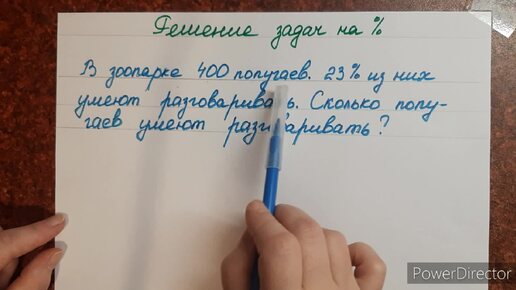 Решение задач на %
В зоопарке 400 попугаев. 23% из них
умеют разговаривать. Сколько попу-
гаев умеют разговаривать?
PowerDirector